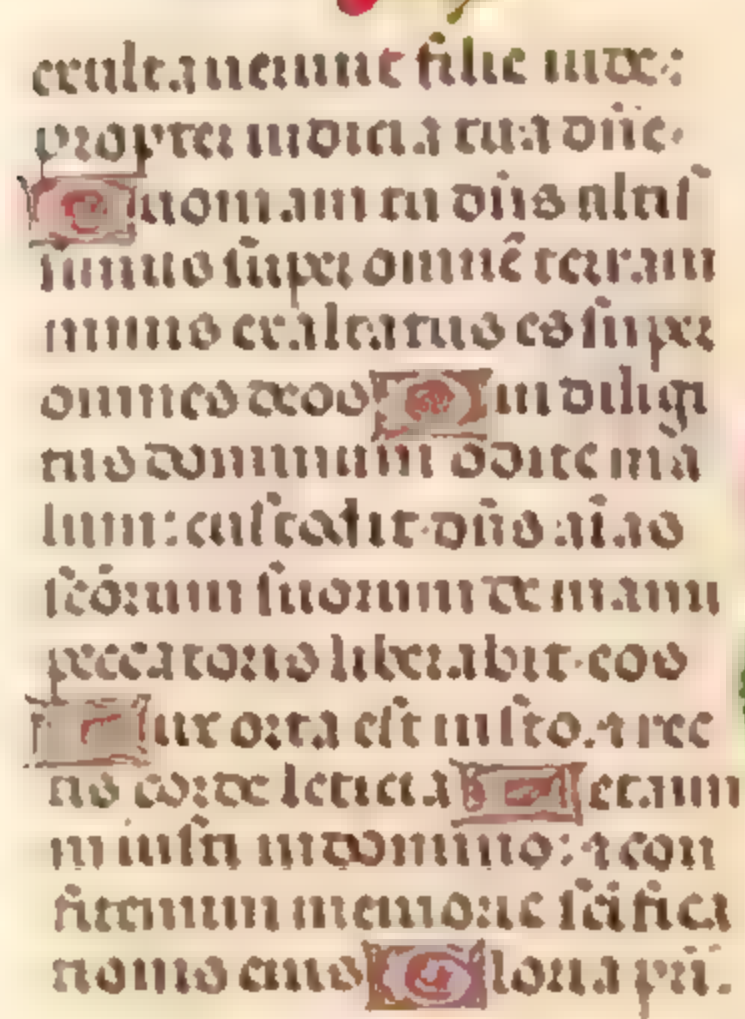 exultaverunt filie iude:
propter iudicia tua dñe.
Quoniam tu dñs altiſ
simus super omnē terram
nimis exaltatus es super
omnes deos Qui diligi
tis dominum odite ma
lum: custodit dñs aīas
sc̄oꝝum suorum de manu
peccatoris liberabit eos
Lux orta est iusto. ⁊ rec
tis corde leticia Letami
ni iusti in domino: ⁊ con
fitemini memorie sc̄ifica
tionis eius Gloria pri.